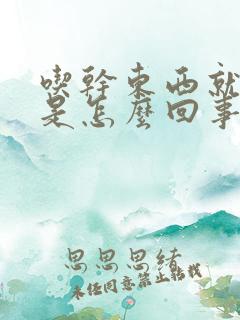 喫幹東西就
是怎麼回事
思思思緒
未經同意禁止轉載